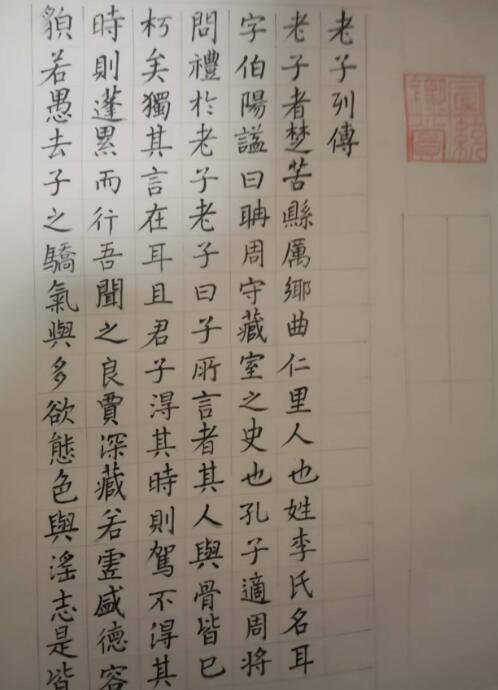 老子列傳
老子者楚苦縣厲鄉曲仁里人也姓李氏名耳
字伯陽諡曰聃周守藏室之史也孔子適周將
問禮於老子老子曰子所言者其人與骨皆已
朽矣獨其言在耳且君子得其時則駕不得其
時則蓬累而行吾聞之良賈深藏若虛盛德容
貌若愚去子之驕氣與多欲態色與淫志是皆